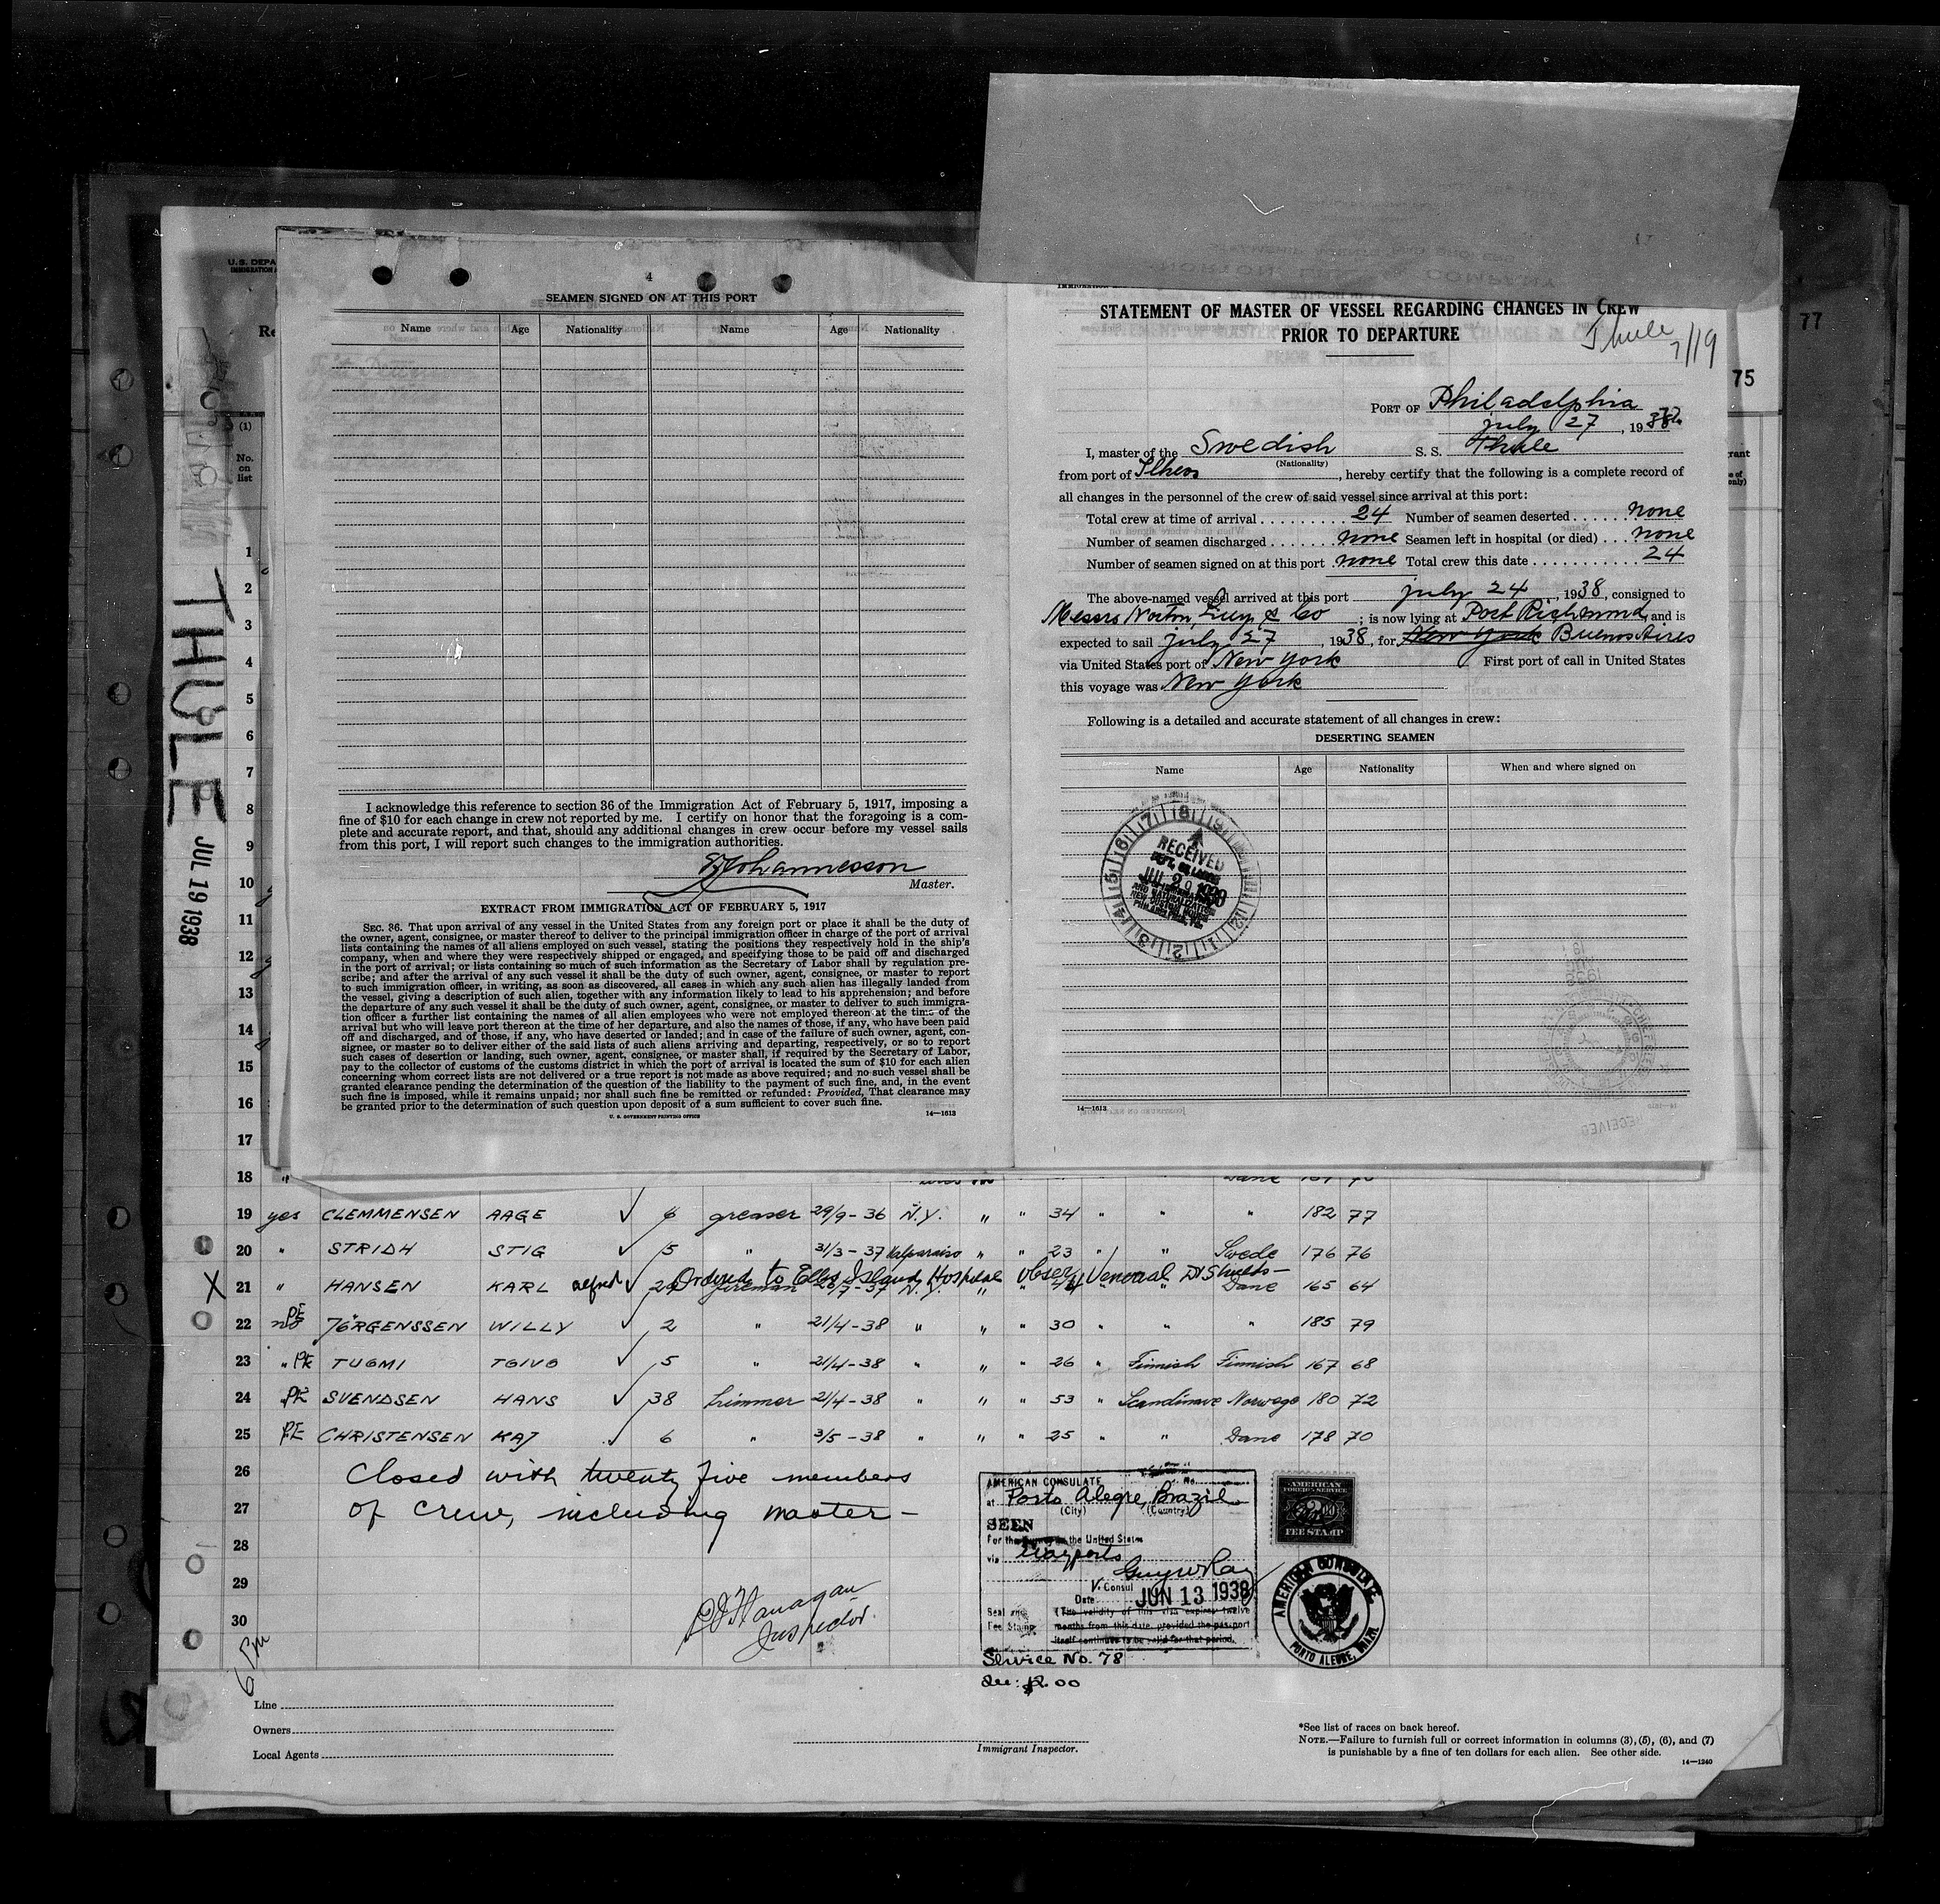 U.S. DEPA
77
75
THULE JUL 19 1938
(1)
No.
on
list
1
2
3
4
5
6
7
8
9
10
11
12
13
14
15
16
17
18
4
SEAMEN SIGNED ON AT THIS PORT
Name Age Nationality Name Age Nationality
I acknowledge this reference to section 36 of the Immigration Act of February 5, 1917, imposing a
fine of $10 for each change in crew not reported by me. I certify on honor that the foregoing is a com-
plete and accurate report, and that, should any additional changes in crew occur before my vessel sails
from this port, I will report such changes to the immigration authorities.
Johannesson
Master.
EXTRACT FROM IMMIGRATION ACT OF FEBRUARY 5, 1917
SEC. 36. That upon arrival of any vessel in the United States from any foreign port or place it shall be the duty of
the owner, agent, consignee, or master thereof to deliver to the principal immigration officer in charge of the port of arrival
lists containing the names of all aliens employed on such vessel, stating the positions they respectively hold in the ship's
company, when and where they were respectively shipped or engaged, and specifying those to be paid off and discharged
in the port of arrival; or lists containing so much of such information as the Secretary of Labor shall by regulation pre-
scribe; and after the arrival of any such vessel it shall be the duty of such owner, agent, consignee, or master to report
to such immigration officer, in writing, as soon as discovered, all cases in which any such alien has illegally landed from
the vessel, giving a description of such alien, together with any information likely to lead to his apprehension; and before
the departure of any such vessel it shall be the duty of such owner, agent, consignee, or master to deliver to such immigra-
tion officer a further list containing the names of all alien employees who were not employed thereon at the time of the
arrival but who will leave port thereon at the time of her departure, and also the names of those, if any, who have been paid
off and discharged, and of those, if any, who have deserted or landed; and in case of the failure of such owner, agent, con-
signee, or master so to deliver either of the said lists of such aliens arriving and departing, respectively, or so to report
such cases of desertion or landing, such owner, agent, consignee, or master shall, if required by the Secretary of Labor,
pay to the collector of customs of the customs district in which the port of arrival is located the sum of $10 for each alien
concerning whom correct lists are not delivered or a true report is not made as above required; and no such vessel shall be
granted clearance pending the determination of the question of the liability to the payment of such fine, and, in the event
such fine is imposed, while it remains unpaid; nor shall such fine be remitted or refunded: Provided, That clearance may
be granted prior to the determination of such question upon deposit of a sum sufficient to cover such fine.
U. S. GOVERNMENT PRINTING OFFICE 14—1613
STATEMENT OF MASTER OF VESSEL REGARDING CHANGES IN CREW
PRIOR TO DEPARTURE
Thule 7/19
PORT OF Philadelphia
july 27, 1938
I, master of the Swedish S. S. Thule
(Nationality)
from port of Ilheos, hereby certify that the following is a complete record of
all changes in the personnel of the crew of said vessel since arrival at this port:
Total crew at time of arrival 24 Number of seamen deserted none
Number of seamen discharged none Seamen left in hospital (or died) none
Number of seamen signed on at this port none Total crew this date 24
The above-named vessel arrived at this port july 24, 1938, consigned to
Messrs Norton, Lilly & Co; is now lying at Port Richmond, and is
expected to sail july 27, 1938, for New York Buenos Aires
via United States port of New York First port of call in United States
this voyage was New York
Following is a detailed and accurate statement of all changes in crew:
DESERTING SEAMEN
Name Age Nationality When and where signed on
RECEIVED
14—1613
19 yes CLEMMENSEN AAGE 6 greaser 29/9-36 N.Y. " " 34 " " " 182 77
20 " STRIDH STIG 5 " 31/3-37 Valparaiso " " 23 " " Swede 176 76
Ordered to Ellis Island Hospital Obser Venereal Dr Shults-
21 " HANSEN KARL alfred fireman N.Y. " " " " Dane 165 64
22 no PE JÖRGENSSEN WILLY 2 " 21/4-38 " " " 30 " " " 185 79
23 " PE TUOMI TOIVO 5 " 21/4-38 " " " 26 " Finnish Finnish 167 68
24 PE SVENDSEN HANS 38 trimmer 21/4-38 " " " 53 " Scandinave Norwege 180 72
25 PE CHRISTENSEN KAJ 6 " 3/5-38 " " " 25 " " Dane 178 70
26 Closed with twenty five members
27 of crew, including master-
28
29
30
Flanagan
Inspector
6 Pm
AMERICAN CONSULATE No.
at Porto Alegre, Brazil
(City) (Country)
SEEN
For the the United States
via Wayports
Guy W Ray
V. Consul
Date JUN 13 1938
Seal and (The validity of this visa expires twelve
Fee Stamp months from this date, provided the passport
itself continues to be valid for that period.
Service No. 78
AMERICAN
FOREIGN SERVICE
FEE STAMP
AMERICAN CONSULATE
PORTO ALEGRE, BRAZIL
Line
Owners
Local Agents
Immigrant Inspector.
*See list of races on back hereof.
NOTE.—Failure to furnish full or correct information in columns (3), (5), (6), and (7)
is punishable by a fine of ten dollars for each alien. See other side.
14—1240